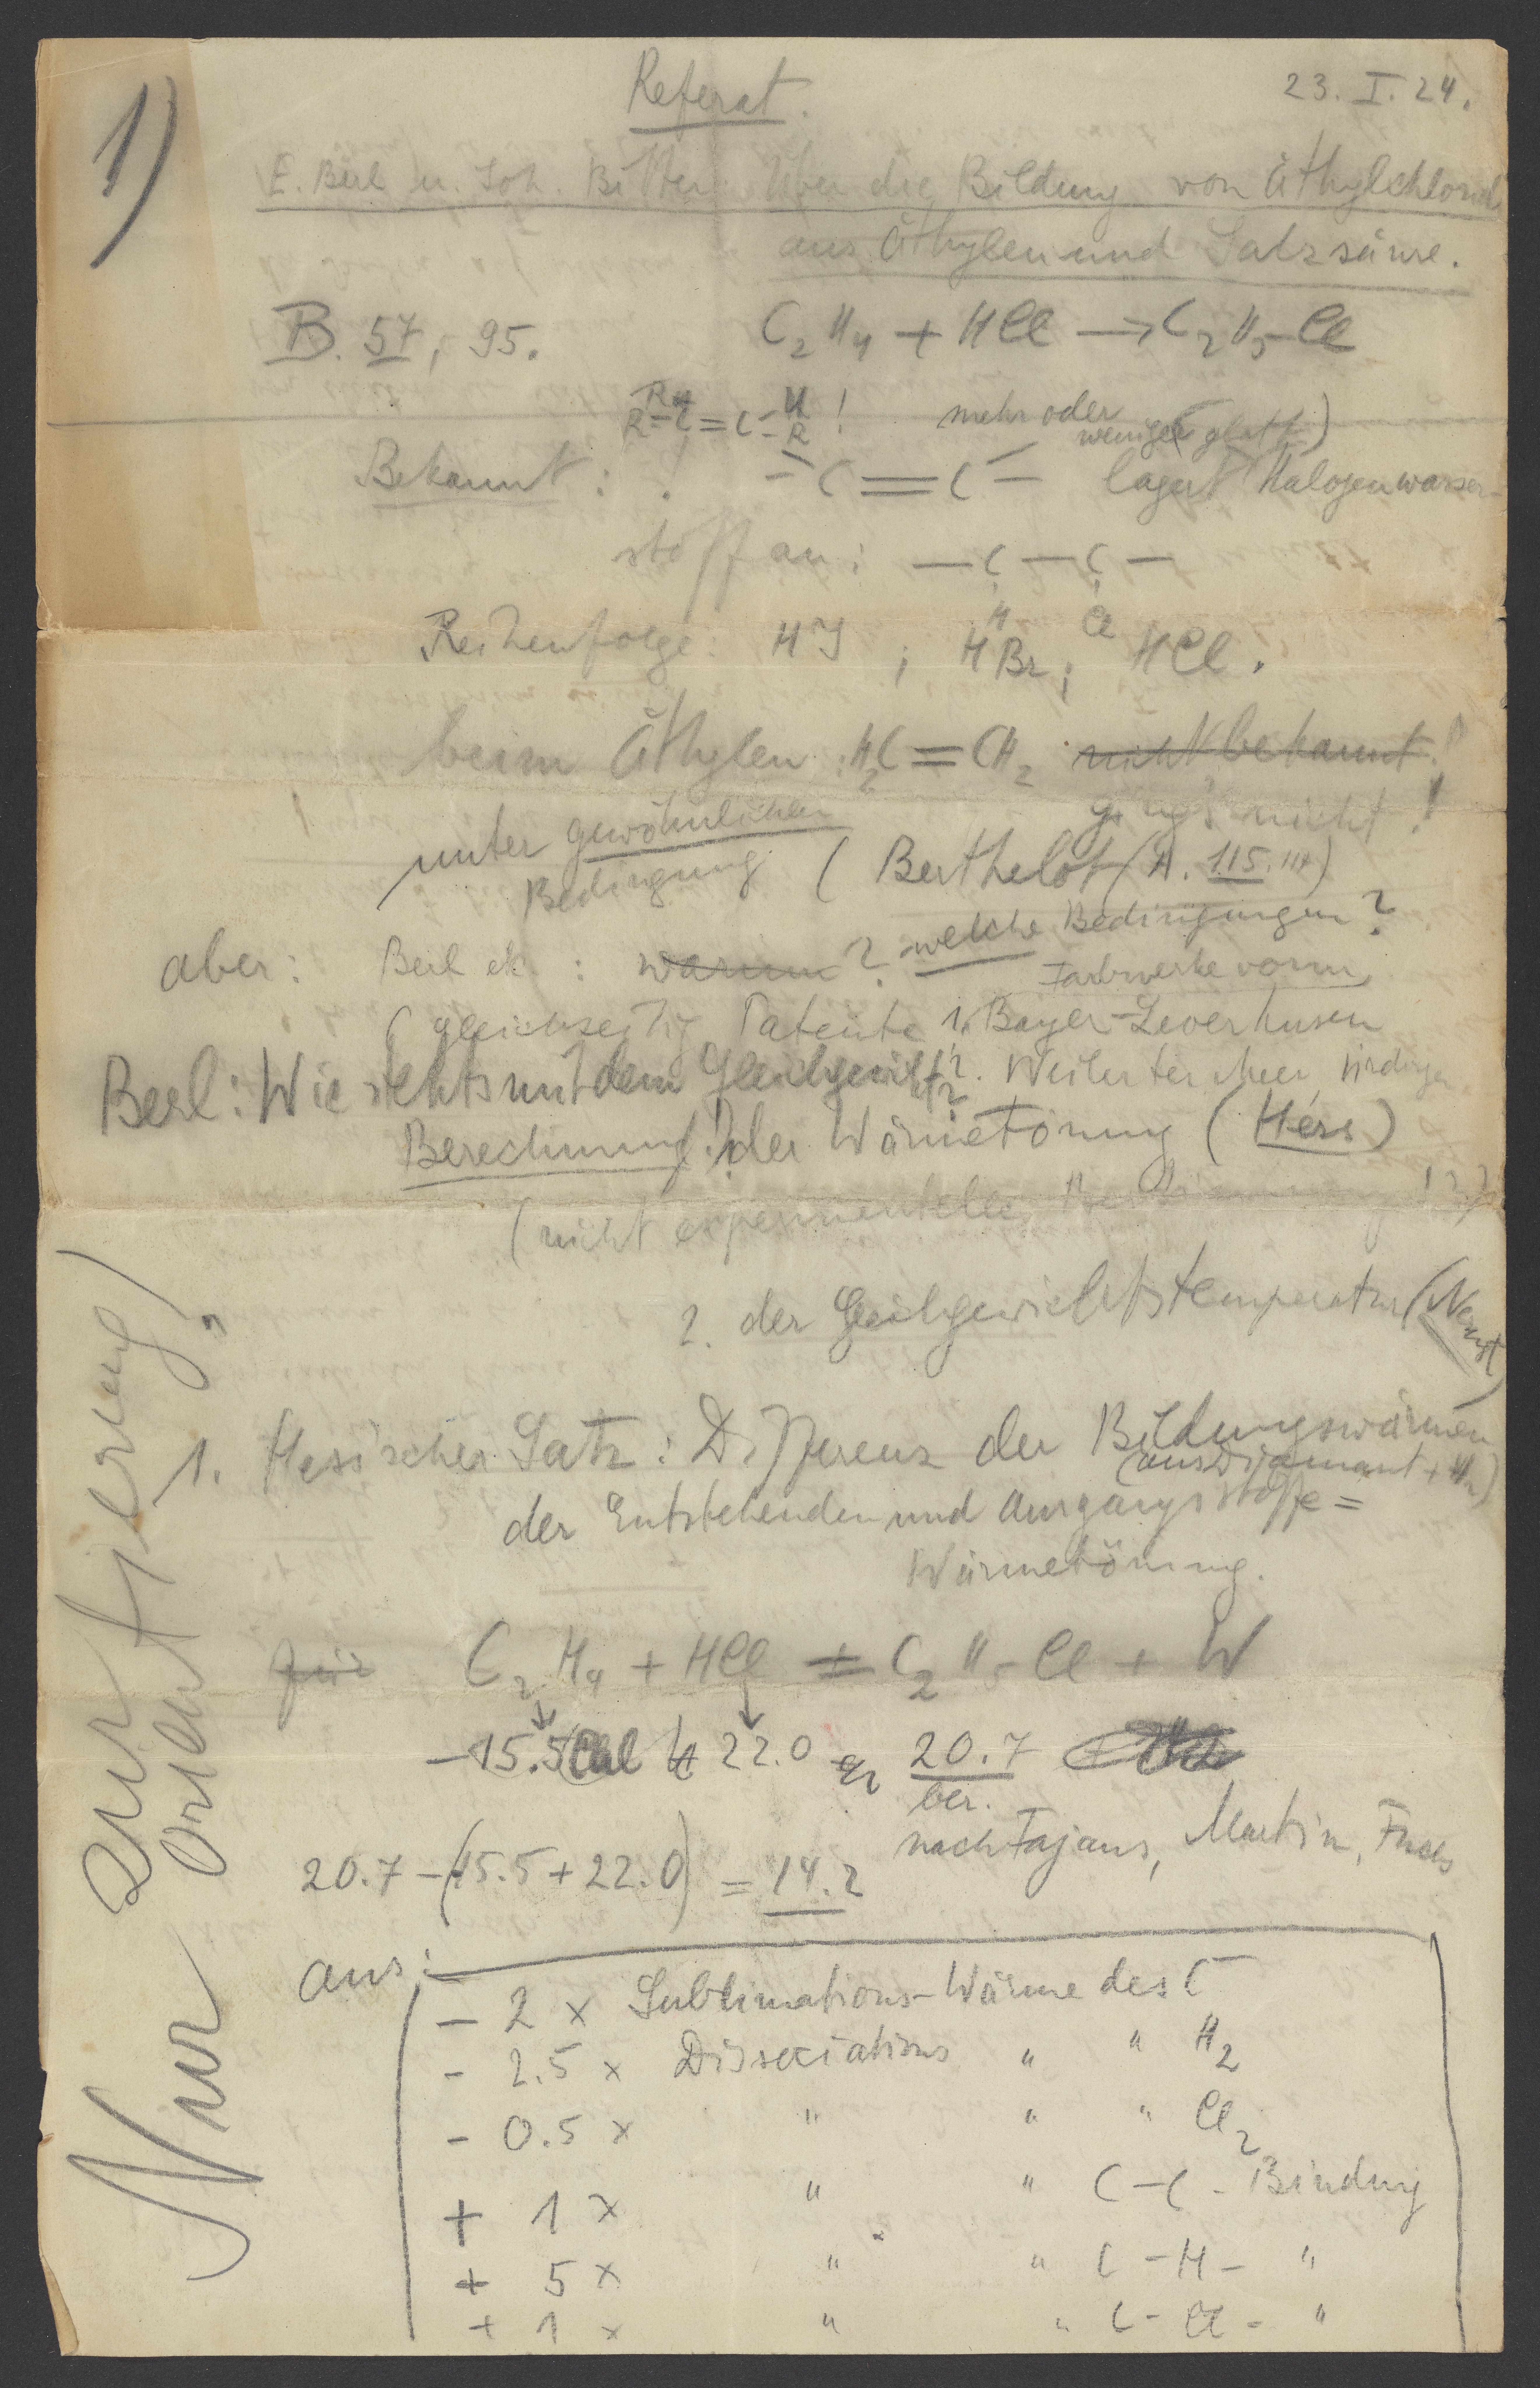 1)
Referat.
23. I. 24.
E. Berl u. Joh. Bitter: Über die Bildung von Äthylchlorid
aus Äthylen und Salzsäure.
B. 57, 95.
C2H4 + HCl → C2H5Cl
R-C=C-R !
mehr oder
weniger glatt)
Bekannt: ! C=C lagert Halogenwasser-
stoff an: -C-C-
H Cl
Reihenfolge: HJ ; HBr ; HCl.
beim Äthylen H2C=CH2 nicht bekannt!
ging's nicht!
unter gewöhnlichen
Bedingung
(Berthelot (A. 115. 114)
aber: Berl etc: warum? welche Bedingungen?
Farbwerke vorm.
(gleichzeitig Patente 1. Bayer-Leverkusen
Berl: Wie stehts mit dem Gleichgewicht?
2. Weiler ter Meer Ürdingen
Berechnung! 1. der Wärmetönung (Hess)
(nicht experimentelle Bestimmung !?)
2. der Gleichgewichtstemperatur (Nernst)
1. Hessischer Satz: Differenz der Bildungswärmen
(aus Diamant + H2)
der Entstehenden und Ausgangsstoffe =
Wärmetönung.
für C2H4 + HCl = C2H5Cl + W
-15.5 Cal + 22.0 20.7
ber.
nach Fajans, Martin, Fuchs
20.7 - (-15.5 + 22.0) = 14.2
aus:
- 2 x Sublimations-Wärme des C
- 2.5 x Dissociations " " H2
- 0.5 x " " " Cl2
+ 1 x " " C-C-Bindung
+ 5 x " " C-H- "
+ 1 x " " C-Cl- "
Nur zur
Orientierung!